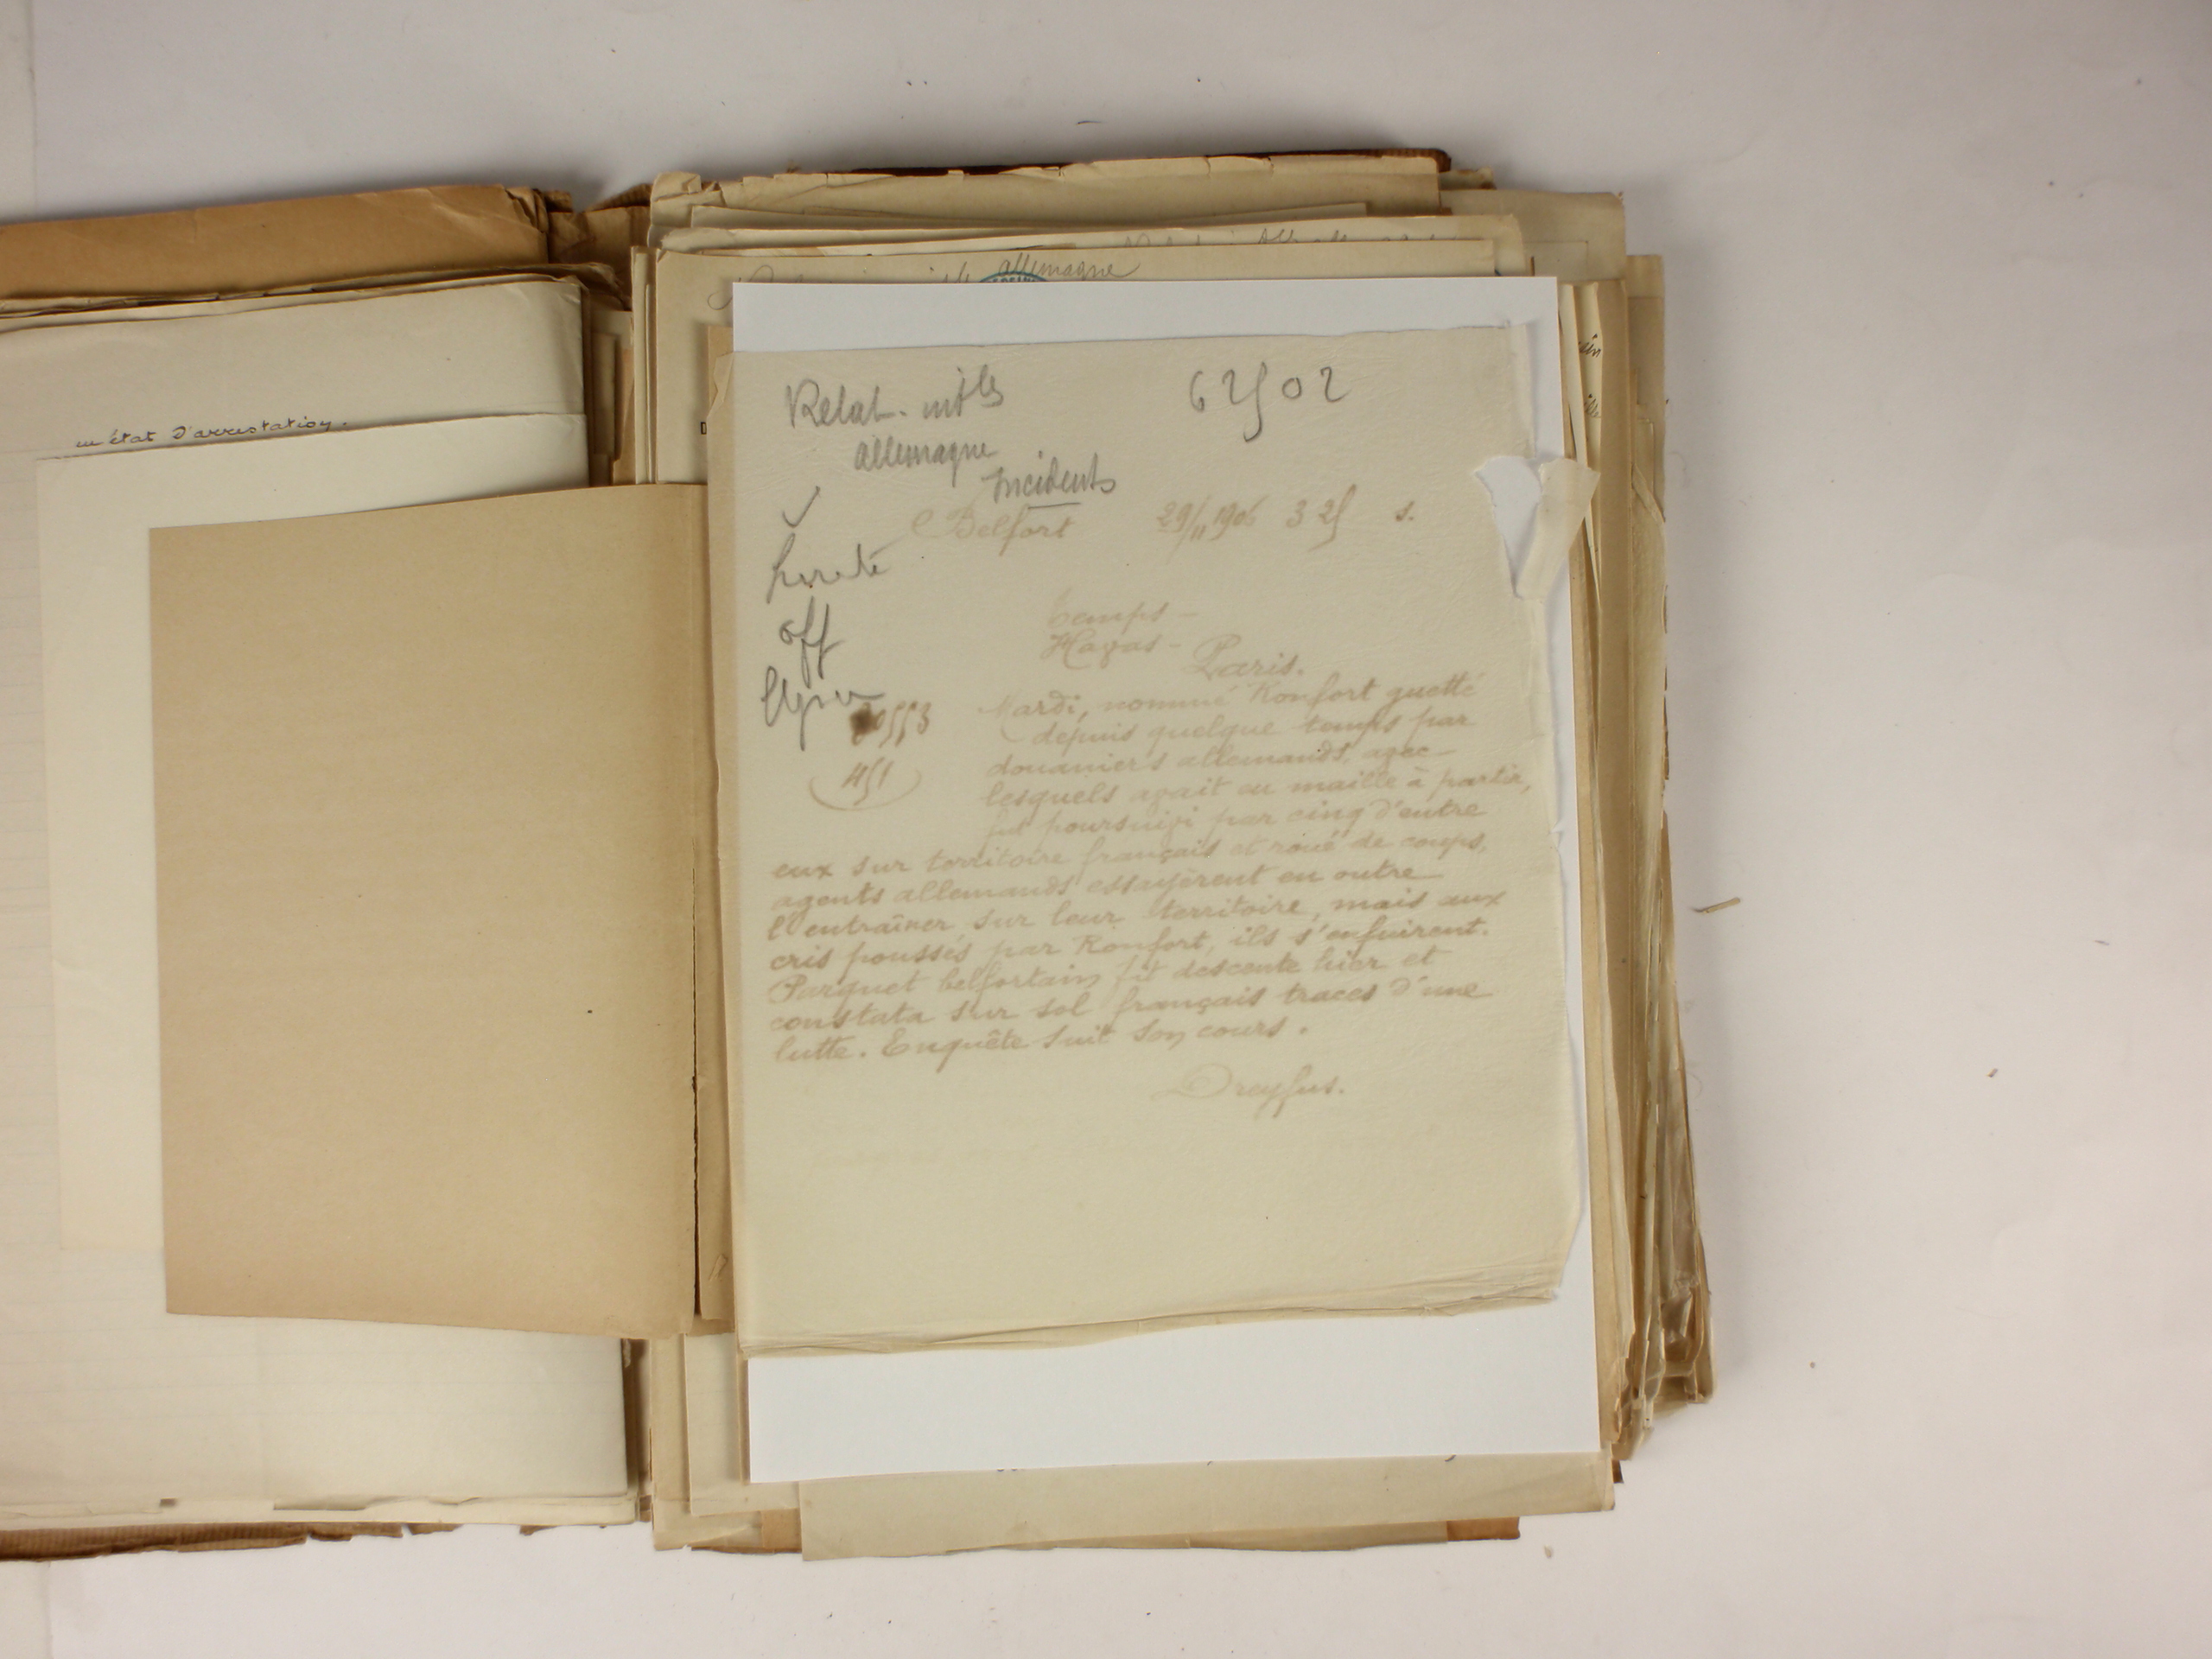 en état d'arrestation.
allemagne
Relat. intles
allemagne
Incidents
62502
Belfort 29/11 1906 3 25 s.
Sureté
off
Elysée
Temps -
Havas - Paris.
451
Mardi, nommé Konfort guetté
depuis quelque temps par
douaniers allemands, avec
lesquels avait eu maille à partir,
fut poursuivi par cinq d'entre
eux sur territoire français et roué de coups,
agents allemands essayèrent en outre
l'entraîner sur leur territoire, mais aux
cris poussés par Konfort, ils s'enfuirent.
Parquet belfortain fit descente hier et
constata sur sol français traces d'une
lutte. Enquête suit son cours.
Dreyfus.